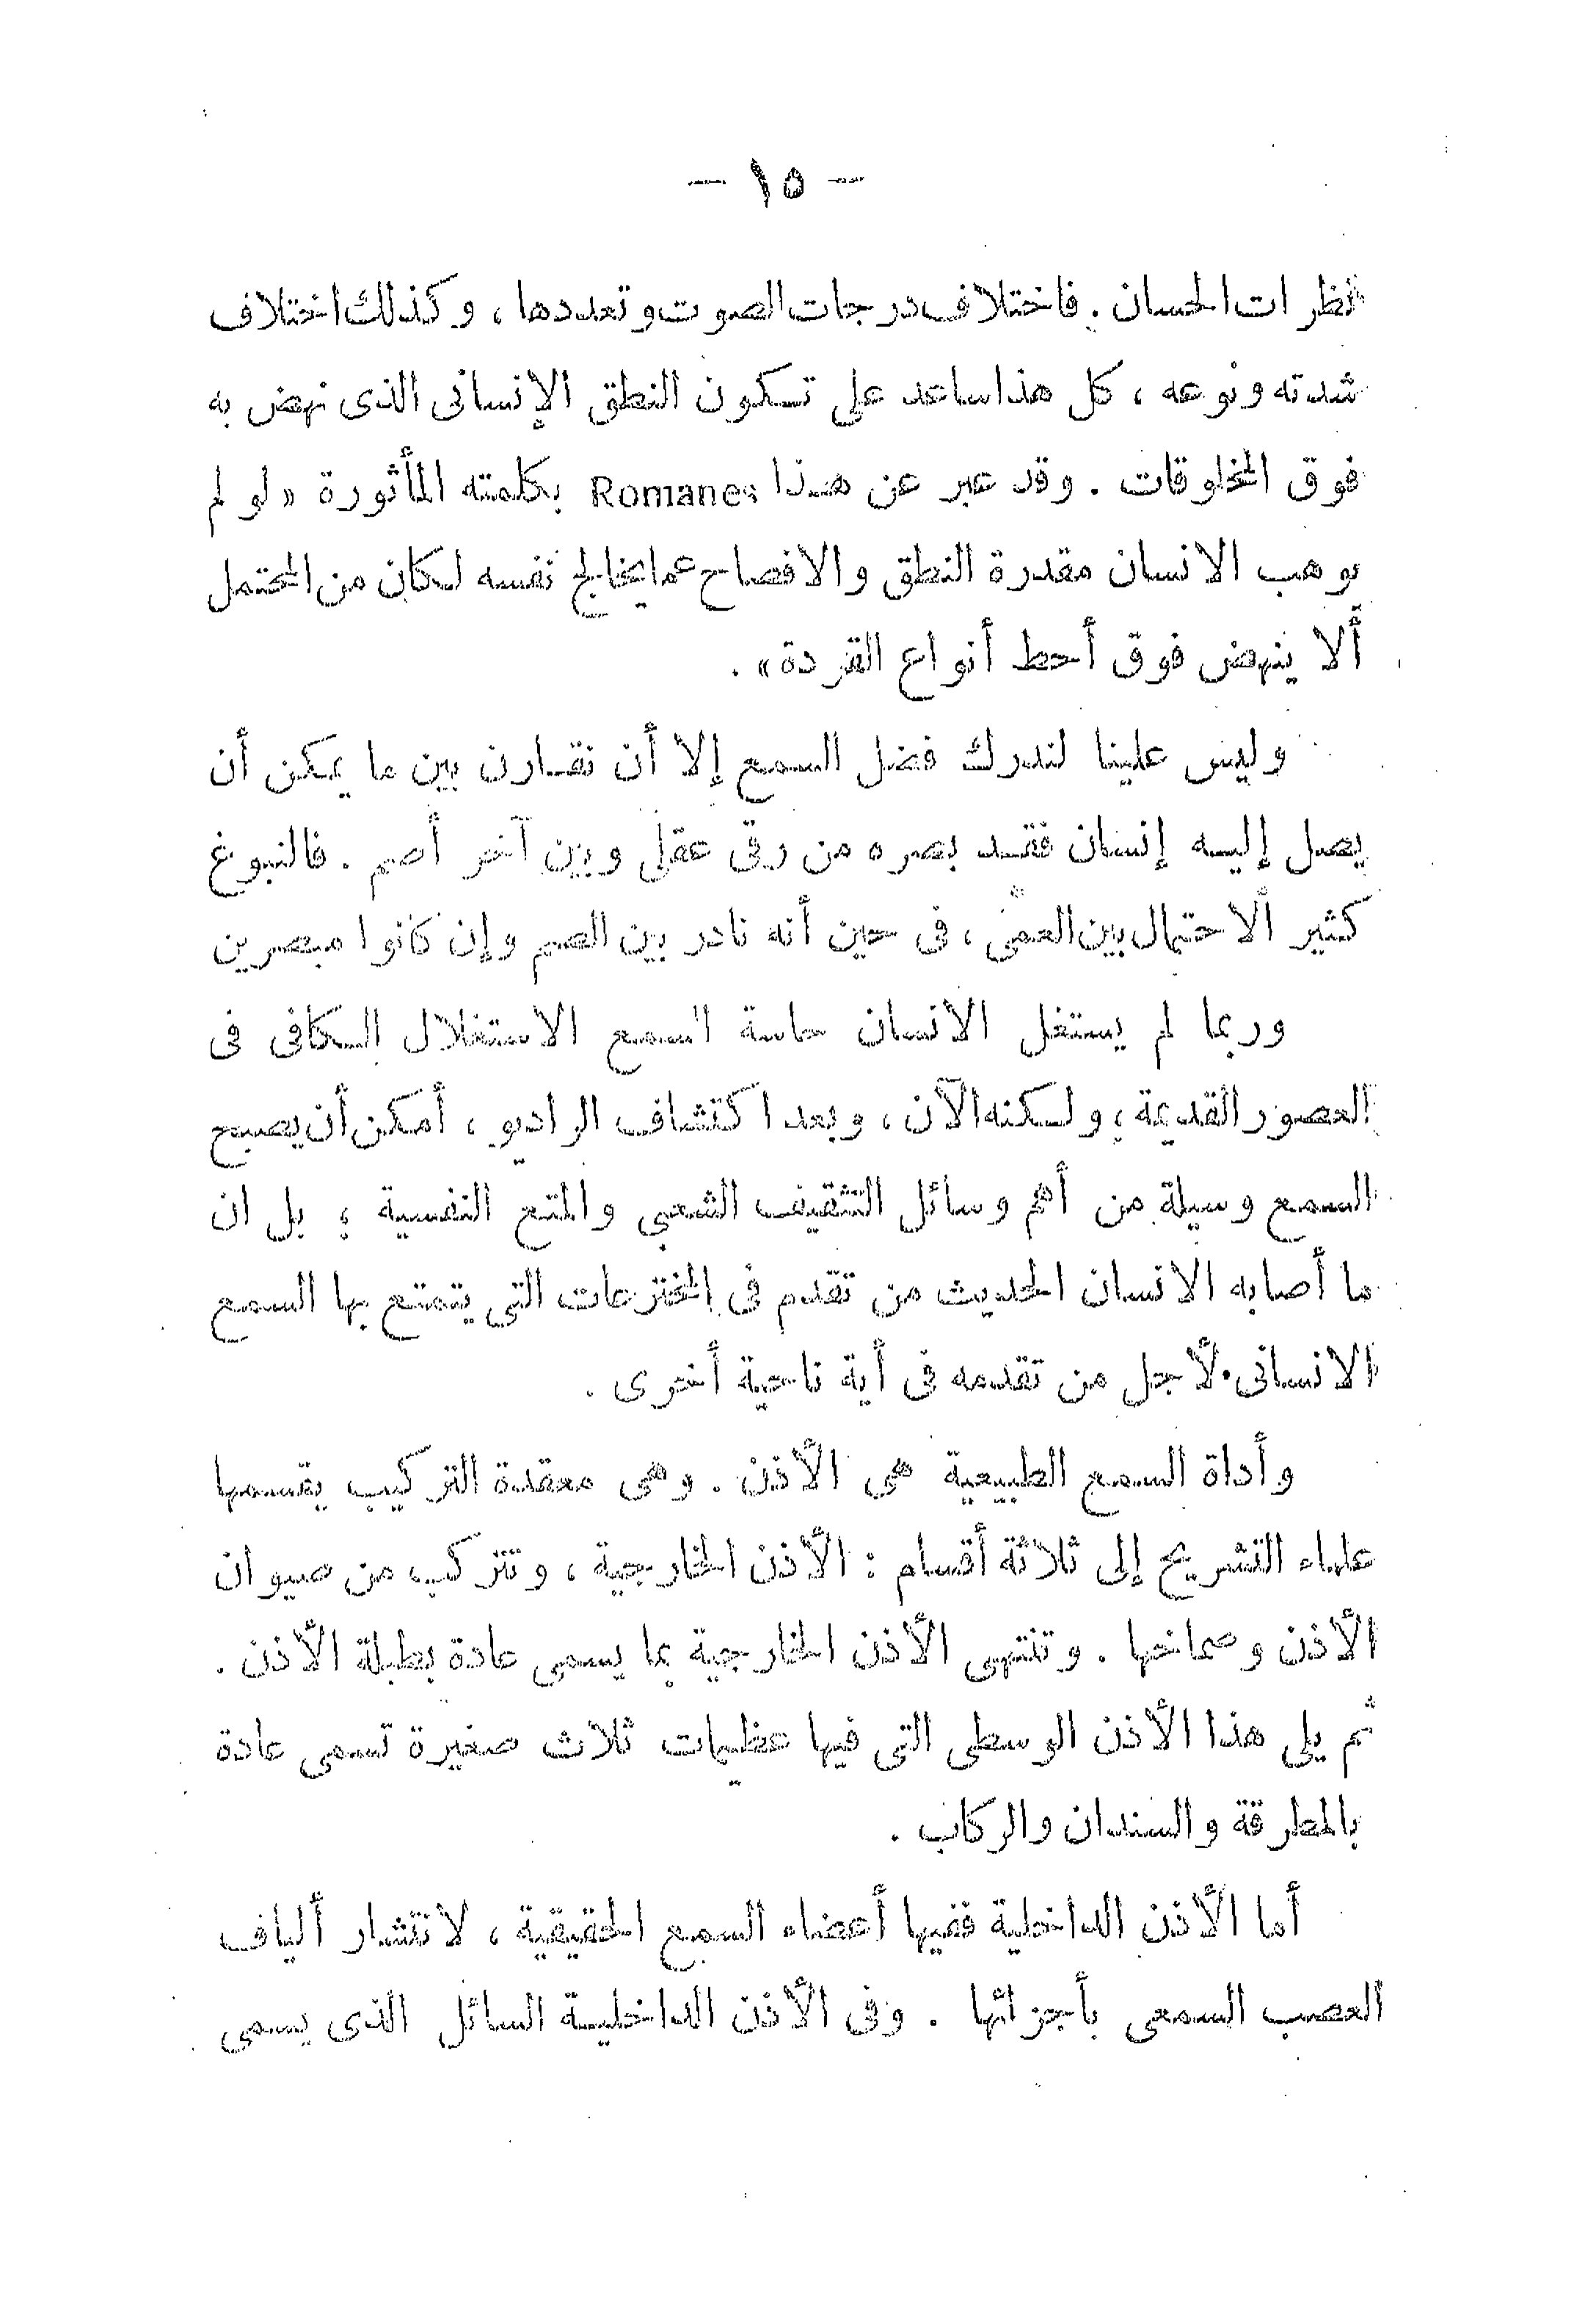 - ١٥ -
نظرات الحسان . فاختلاف درجات الصوت وتعددها ، وكذلك اختلاف
شدته ونوعه ، كل هذا ساعد على تكون النطق الإنسانى الذى نهض به
فوق المخلوقات . وقد عبر عن هذا Romanes بكلمته المأثورة « لو لم
يوهب الانسان مقدرة النطق والافصاح عما يخالج نفسه لكان من المحتمل
ألا ينهض فوق أحط أنواع القردة » .
وليس علينا لندرك فضل السمع إلا أن نقارن بين ما يمكن أن
يصل إليه إنسان فقد بصره من رقى عقلى وبين آخر أصم . فالنبوغ
كثير الاحتمال بين العمى ، فى حين أنه نادر بين الصم وإن كانوا مبصرين
وربما لم يستغل الانسان حاسة السمع الاستغلال الكافى فى
العصور القديمة ، ولكنه الآن ، وبعد اكتشاف الراديو ، أمكن أن يصبح
السمع وسيلة من أهم وسائل التثقيف الشعبى والمتع النفسية ؛ بل ان
ما أصابه الانسان الحديث من تقدم فى المخترعات التى يتمتع بها السمع
الانسانى لأجل من تقدمه فى أية ناحية أخرى .
وأداة السمع الطبيعية هى الأذن . وهى معقدة التركيب يقسمها
علماء التشريح إلى ثلاثة أقسام : الأذن الخارجية ، وتتركب من صيوان
الأذن وصماخها . وتنتهى الأذن الخارجية بما يسمى عادة بطبلة الأذن .
ثم يلى هذا الأذن الوسطى التى فيها عظيمات ثلاث صغيرة تسمى عادة
بالمطرقة والسندان والركاب .
أما الأذن الداخلية ففيها أعضاء السمع الحقيقية ، لانتشار ألياف
العصب السمعى بأجزائها . وفى الأذن الداخلية السائل الذى يسمى